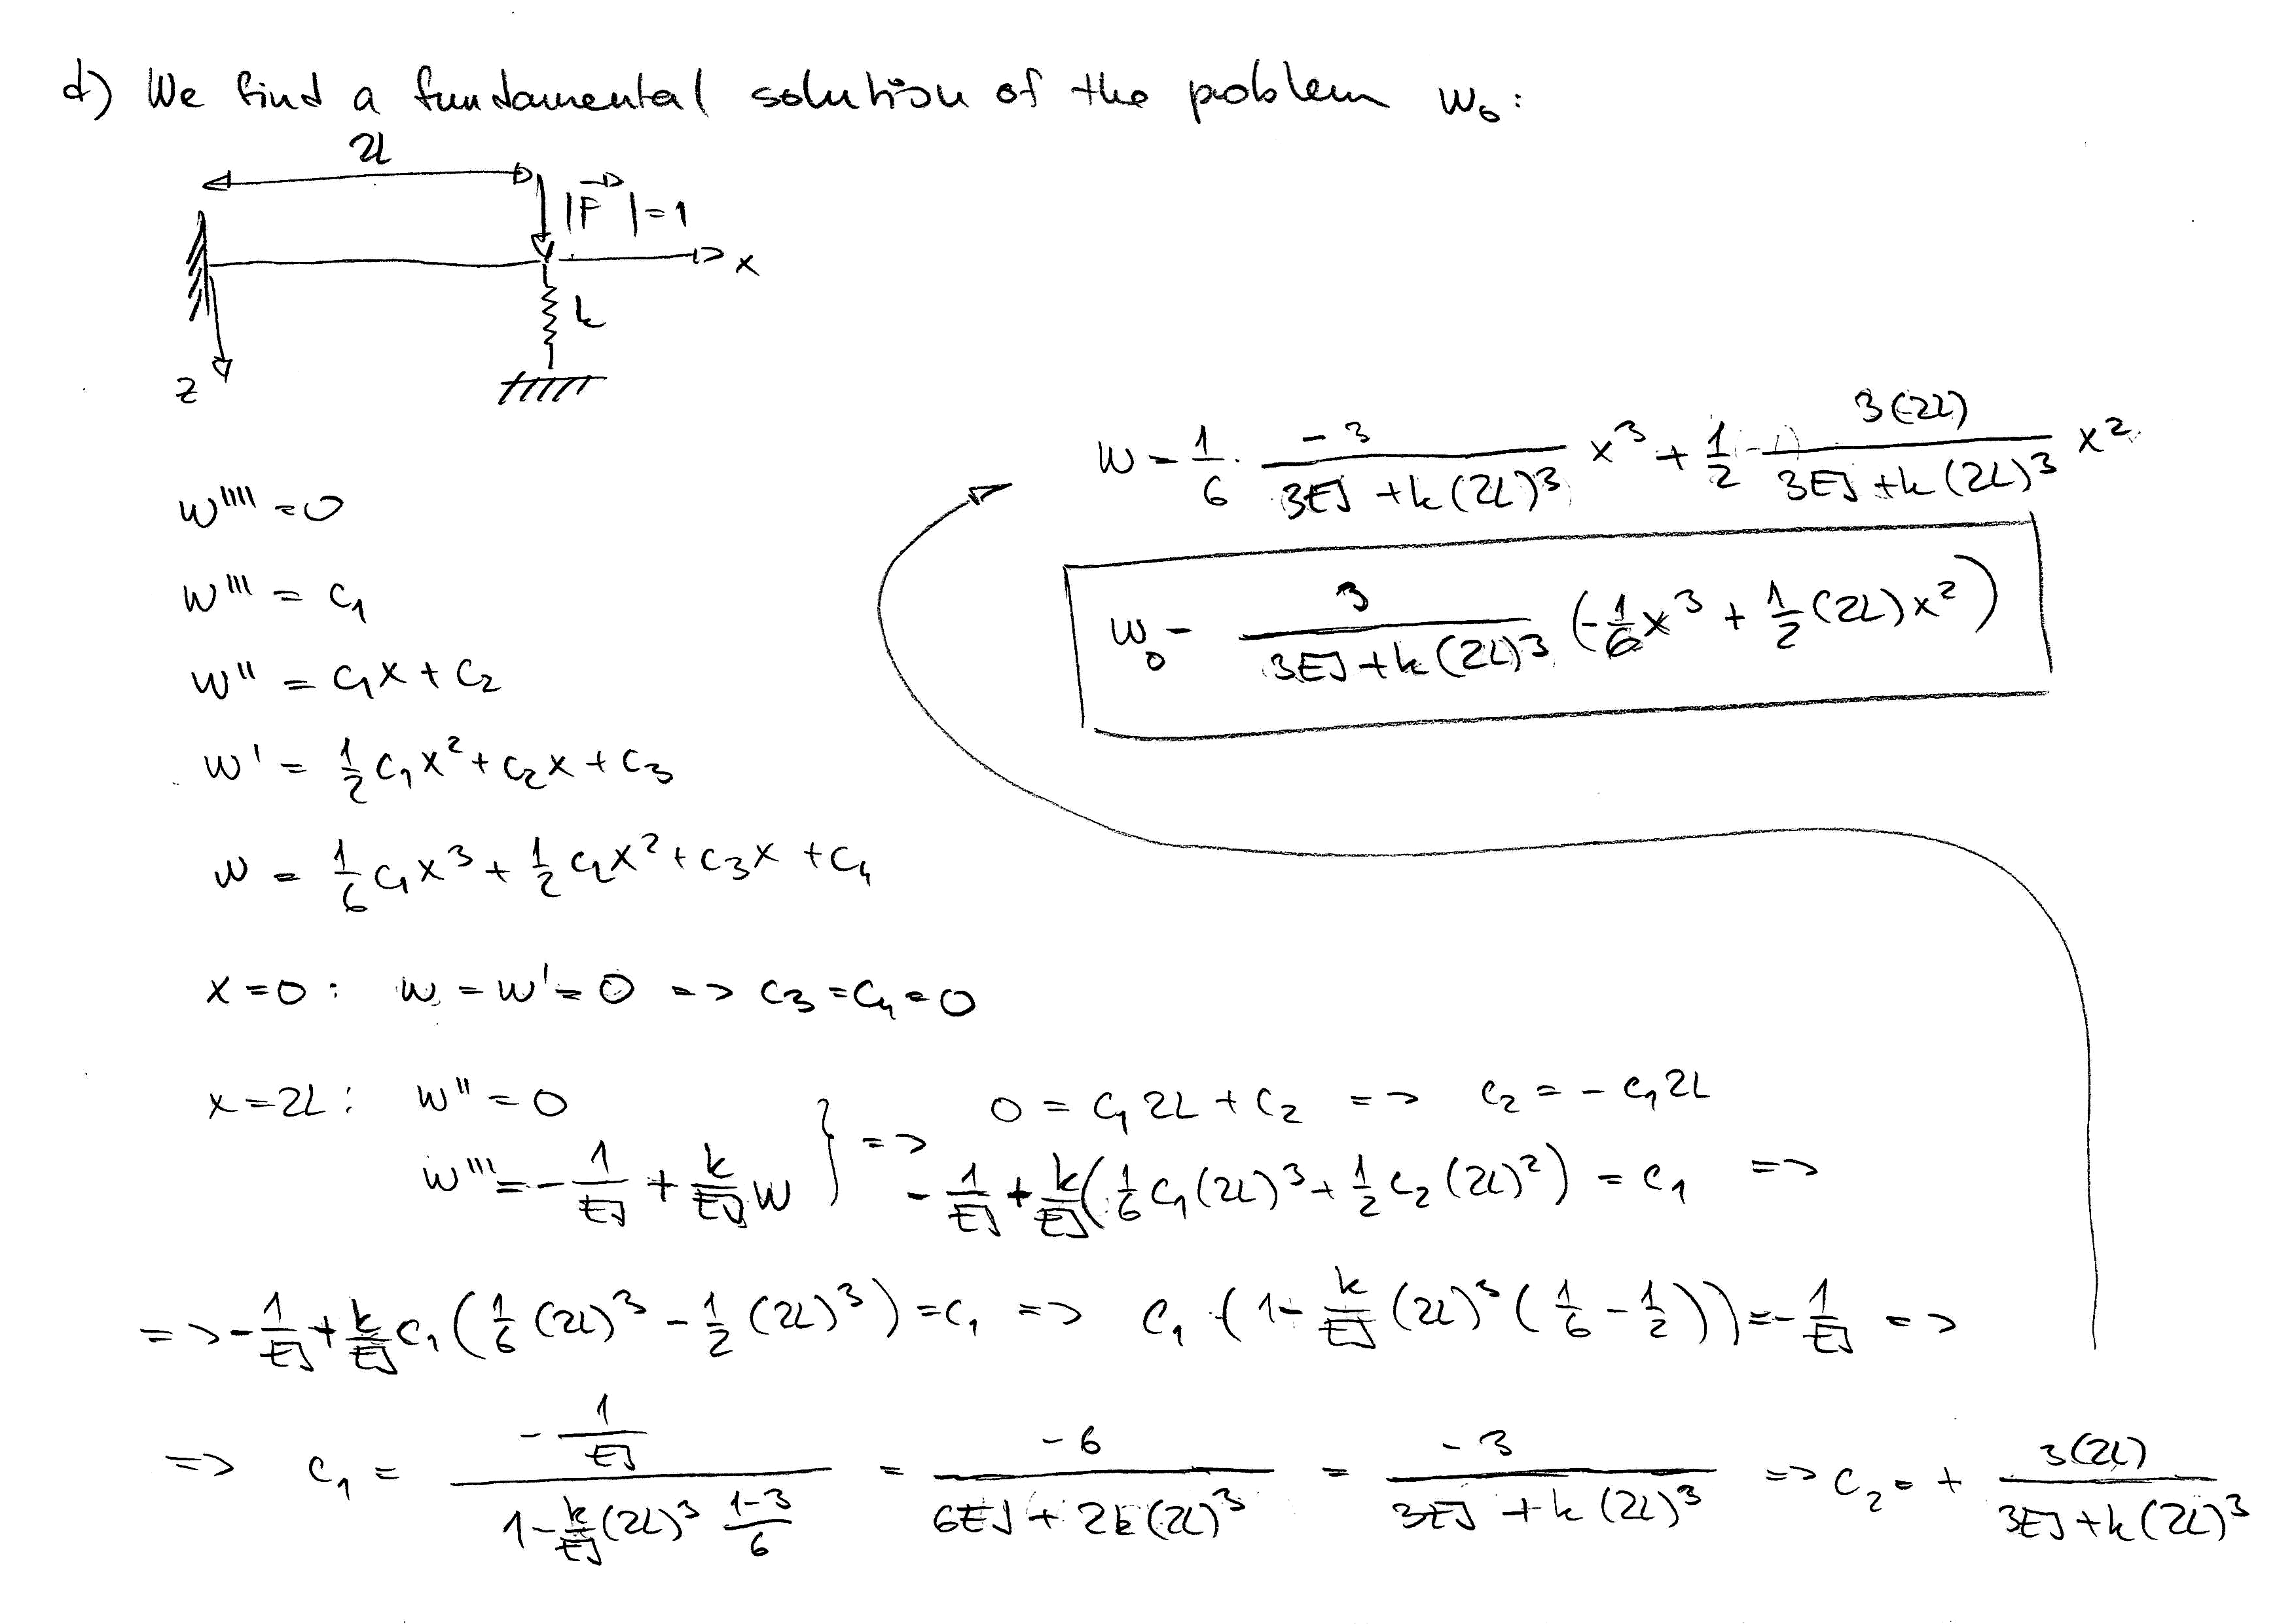 d) We find a fundamental solution of the problem w₀:
2L
|F⃗|=1
x
k
z
w'''' = 0
w''' = c₁
w'' = c₁x + c₂
w' = 1/2 c₁x² + c₂x + c₃
w = 1/6 c₁x³ + 1/2 c₂x² + c₃x + c₄
x=0: w = w' = 0 => c₃ = c₄ = 0
x=2L: w'' = 0
w''' = -1/EJ + k/EJ w } => 0 = c₁2L + c₂ => c₂ = -c₁2L
-1/EJ + k/EJ (1/6 c₁(2L)³ + 1/2 c₂(2L)²) = c₁ =>
=> -1/EJ + k/EJ c₁ (1/6 (2L)³ - 1/2 (2L)³) = c₁ => c₁ · (1 - k/EJ (2L)³ (1/6 - 1/2)) = -1/EJ =>
=> c₁ = (-1/EJ) / (1 - k/EJ (2L)³ (1-3)/6) = -6 / (6EJ + 2k(2L)³) = -3 / (3EJ + k(2L)³) => c₂ = + 3(2L) / (3EJ + k(2L)³)
w = 1/6 · -3 / (3EJ + k(2L)³) x³ + 1/2 · 3(2L) / (3EJ + k(2L)³) x²
w₀ = 3 / (3EJ + k(2L)³) (-1/6 x³ + 1/2 (2L)x²)